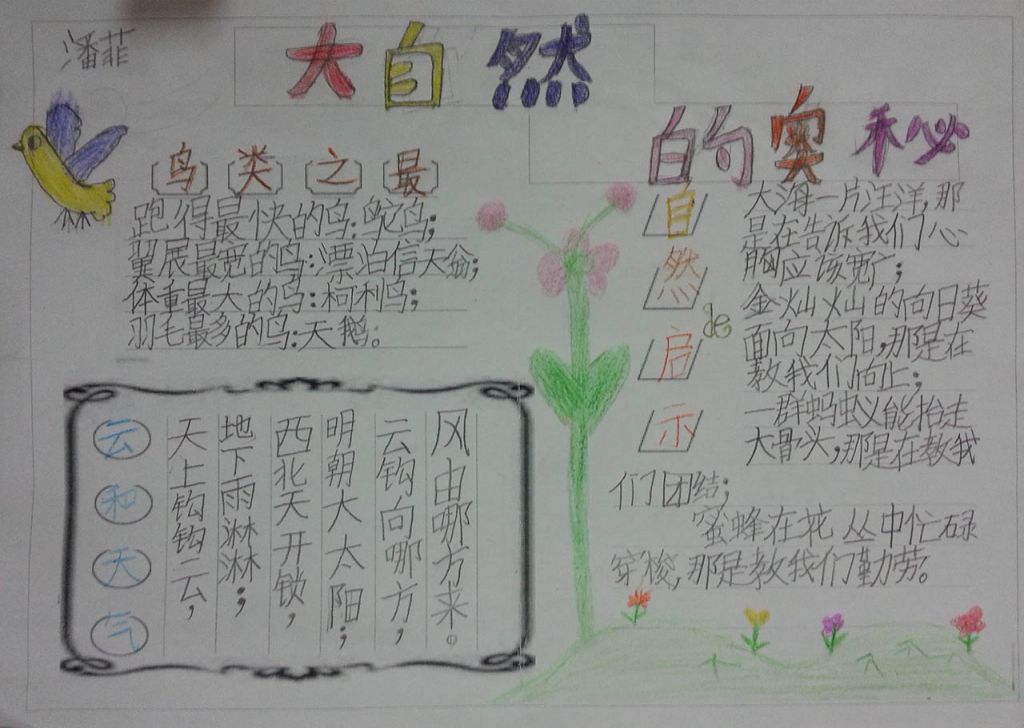 潘菲
大自然
的奥秘
鸟类之最
跑得最快的鸟:鸵鸟;
翼展最宽的鸟:漂泊信天翁;
体重最大的鸟:柯利鸟;
羽毛最多的鸟:天鹅。
云和天气
天上钩钩云,
地下雨淋淋;
西北天开锁,
明朝大太阳;
云钩向哪方,
风由哪方来。
自然de启示
大海一片汪洋,那
是在告诉我们心
胸应该宽广;
金灿灿的向日葵
面向太阳,那是在
教我们向上;
一群蚂蚁能抬走
大骨头,那是在教我
们团结;
蜜蜂在花丛中忙碌
穿梭,那是教我们勤劳。